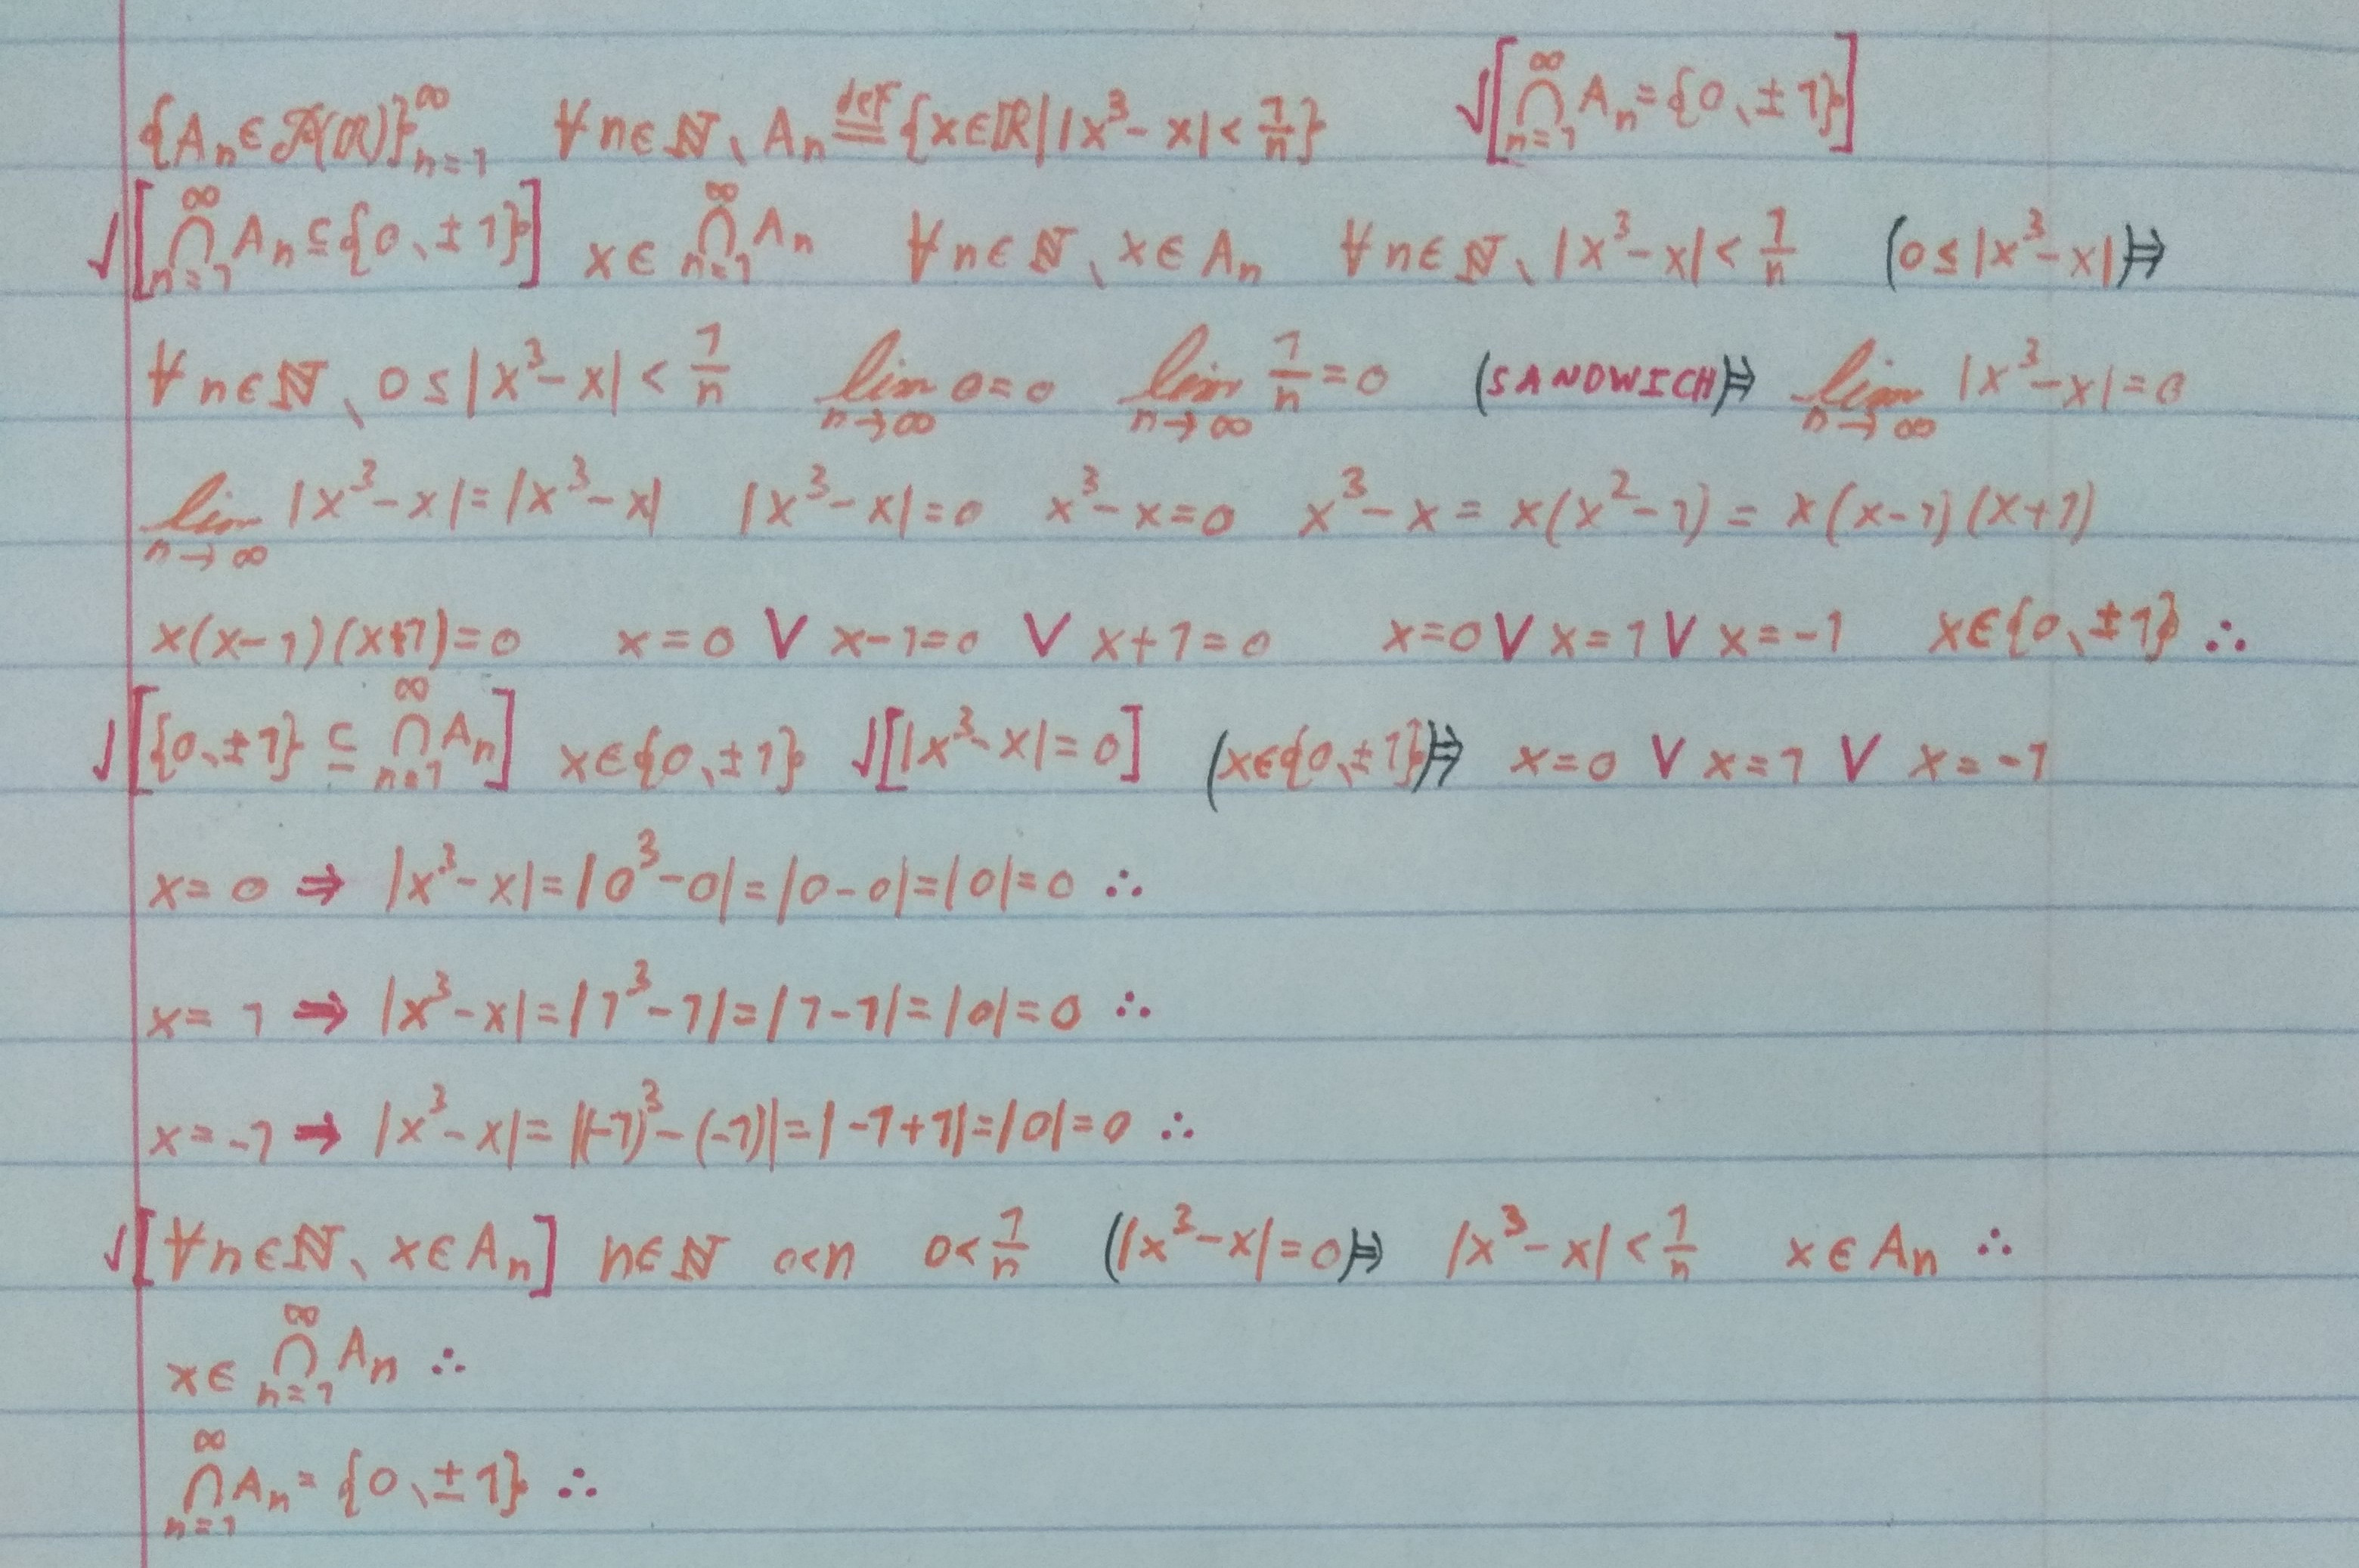 {Aₙ∈𝒫(ℝ)}ₙ₌₁^∞ ∀n∈ℕ、Aₙ ≝ {x∈ℝ| |x³-x|<1/n} √[⋂ₙ₌₁^∞ Aₙ={0、±1}]
√[⋂ₙ₌₁^∞ Aₙ⊆{0、±1}] x∈⋂ₙ₌₁^∞ Aₙ ∀n∈ℕ、x∈Aₙ ∀n∈ℕ、|x³-x|<1/n (0≤|x³-x|)⇒
∀n∈ℕ、0≤|x³-x|<1/n lim_{n→∞} 0=0 lim_{n→∞} 1/n=0 (SANDWICH)⇒ lim_{n→∞} |x³-x|=0
lim_{n→∞} |x³-x|=|x³-x| |x³-x|=0 x³-x=0 x³-x=x(x²-1)=x(x-1)(x+1)
x(x-1)(x+1)=0 x=0 ∨ x-1=0 ∨ x+1=0 x=0 ∨ x=1 ∨ x=-1 x∈{0、±1} ∴
√[{0、±1}⊆⋂ₙ₌₁^∞ Aₙ] x∈{0、±1} √[|x³-x|=0] (x∈{0、±1})⇒ x=0 ∨ x=1 ∨ x=-1
x=0 ⇒ |x³-x|=|0³-0|=|0-0|=|0|=0 ∴
x=1 ⇒ |x³-x|=|1³-1|=|1-1|=|0|=0 ∴
x=-1 ⇒ |x³-x|=|(-1)³-(-1)|=|-1+1|=|0|=0 ∴
√[∀n∈ℕ、x∈Aₙ] n∈ℕ 0<n 0<1/n (|x³-x|=0)⇒ |x³-x|<1/n x∈Aₙ ∴
x∈⋂ₙ₌₁^∞ Aₙ ∴
⋂ₙ₌₁^∞ Aₙ={0、±1} ∴